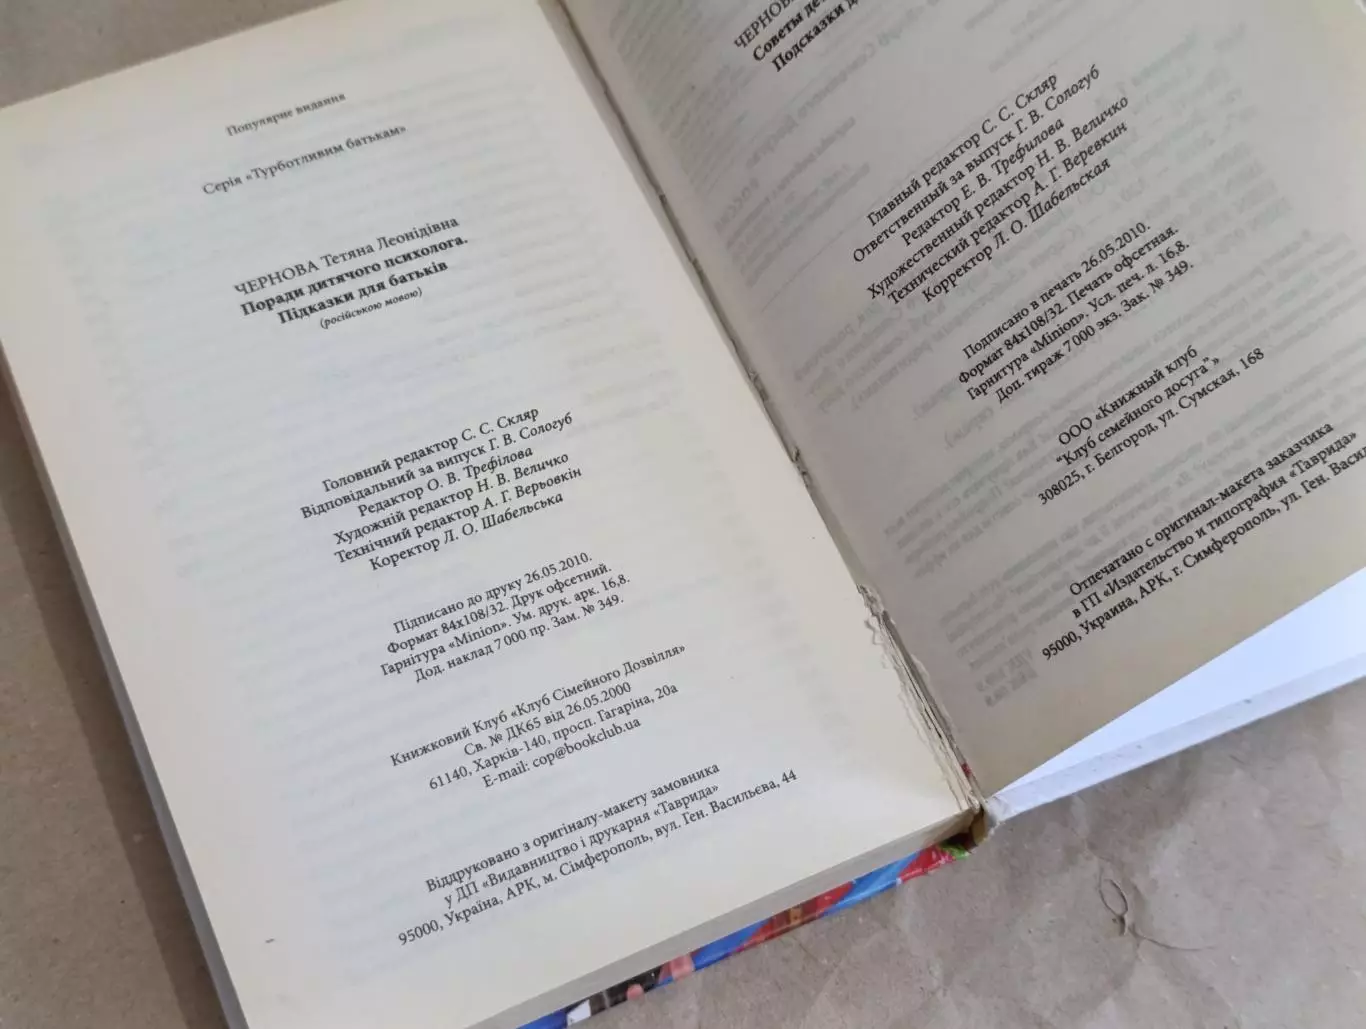 Популярне видання
Серія «Турботливим батькам»
ЧЕРНОВА Тетяна Леонідівна
Поради дитячого психолога.
Підказки для батьків
(російською мовою)
Головний редактор С. С. Скляр
Відповідальний за випуск Г. В. Сологуб
Редактор О. В. Трефілова
Художній редактор Н. В. Величко
Технічний редактор А. Г. Верьовкін
Коректор Л. О. Шабельська
Підписано до друку 26.05.2010.
Формат 84x108/32. Друк офсетний.
Гарнітура «Minion». Ум. друк. арк. 16,8.
Дод. наклад 7 000 пр. Зам. № 349.
Книжковий Клуб «Клуб Сімейного Дозвілля»
Св. № ДК65 від 26.05.2000
61140, Харків-140, просп. Гагаріна, 20а
E-mail: cop@bookclub.ua
Віддруковано з оригіналу-макету замовника
у ДП «Видавництво і друкарня «Таврида»
95000, Україна, АРК, м. Сімферополь, вул. Ген. Васильєва, 44
ЧЕРНОВА
Советы
Подсказки
Главный редактор С. С. Скляр
Ответственный за выпуск Г. В. Сологуб
Редактор Е. В. Трефилова
Художественный редактор Н. В. Величко
Технический редактор А. Г. Веревкин
Корректор Л. О. Шабельская
Подписано в печать 26.05.2010.
Формат 84x108/32. Печать офсетная.
Гарнитура «Minion». Усл. печ. л. 16,8.
Доп. тираж 7 000 экз. Зак. № 349.
ООО «Книжный клуб
"Клуб семейного досуга"»
308025, г. Белгород, ул. Сумская, 168
Отпечатано с оригинал-макета заказчика
в ГП «Издательство и типография «Таврида»
95000, Украина, АРК, г. Симферополь, ул. Ген. Василь